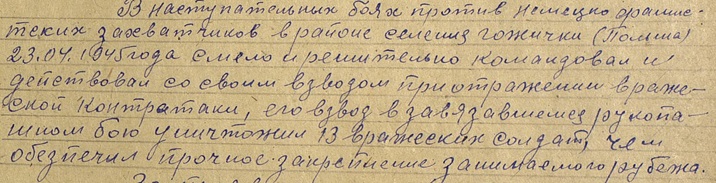 В наступательных боях против немецко фашис-
тских захватчиков в районе селения гожички (Польша)
23.04.1945 года смело и решительно командовал и
действовал со своим взводом при отражении враже-
ской контратаки, его взвод в завязавшемся рукопа-
шном бою уничтожил 13 вражеских солдат, чем
обезпечил прочное закрепление занимаемого рубежа.